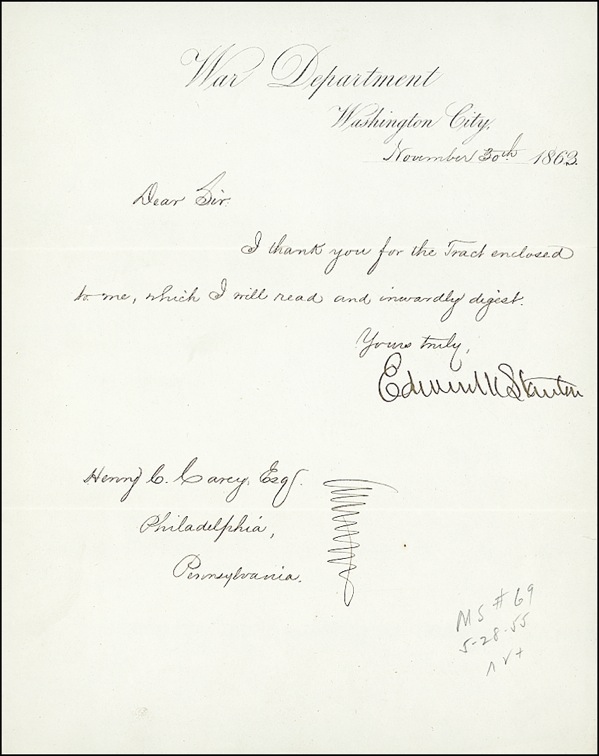 War Department
Washington City,
November 30th 1863.
Dear Sir.
I thank you for the Tract enclosed
to me, which I will read and inwardly digest.
Yours truly,
Edwin M Stanton
Henry C. Carey, Esq.
Philadelphia,
Pennsylvania.
MS # 69
5-28-55